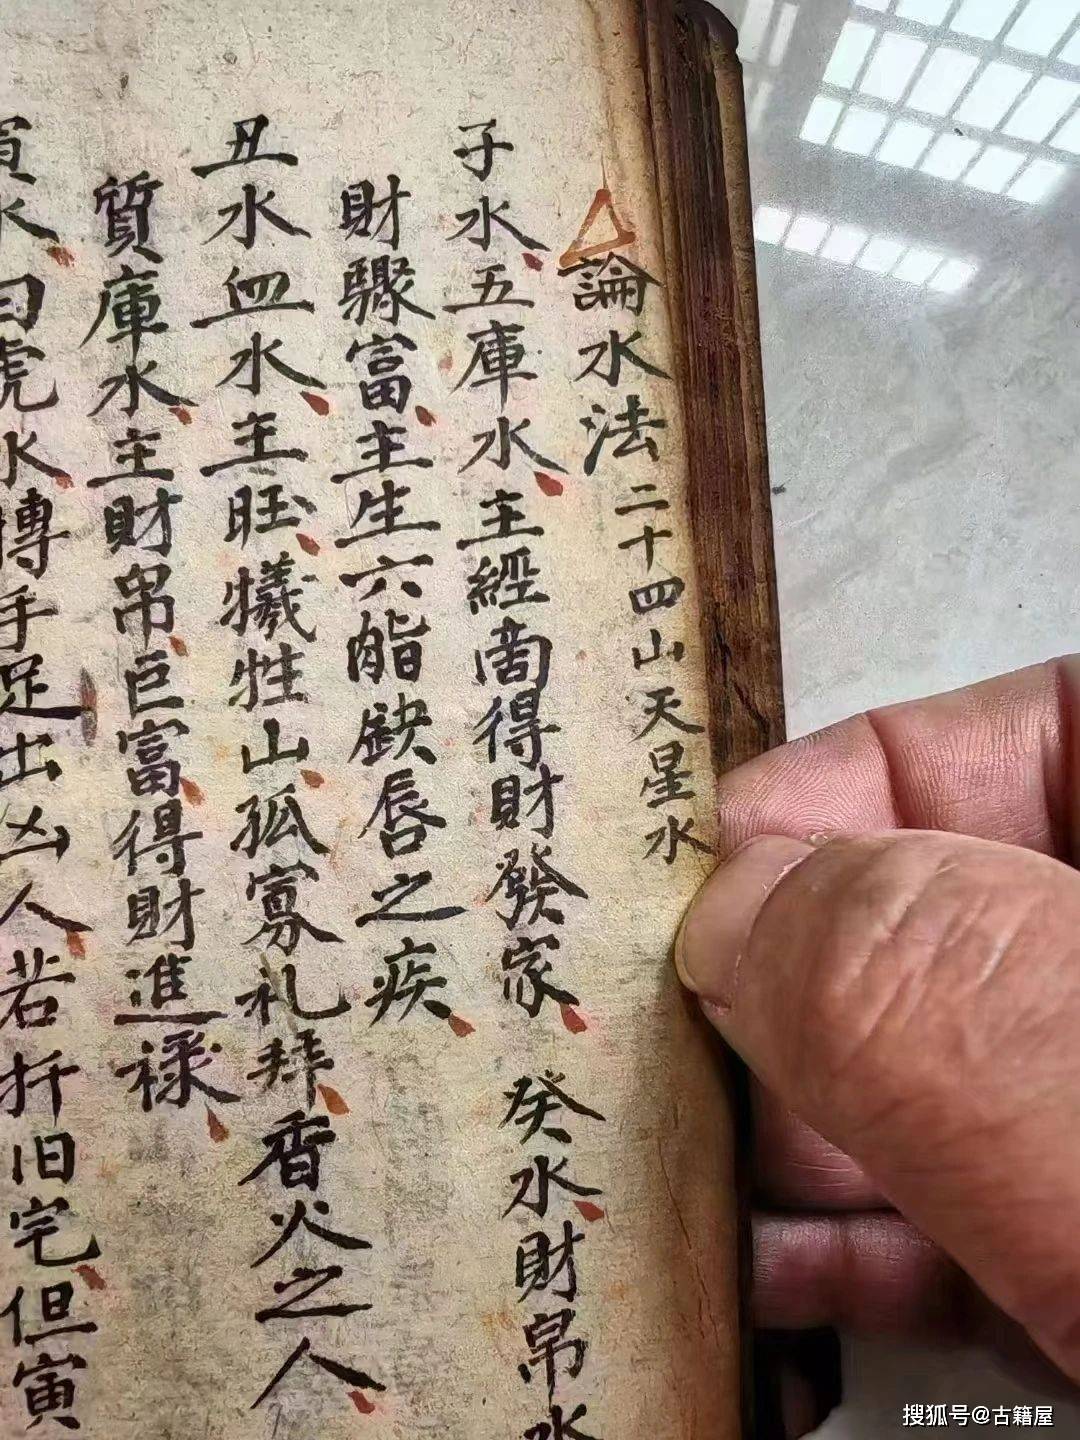 論水法二十四山天星水
子水五庫水主經啇得財發家 癸水財帛水
財驟富主生六
缺唇之疾
丑水血水主旺犧牲山孤寡礼拜香火之人
質庫水主財帛巨富得財進禄
寅水曰虎水搏手足出凶人若折旧宅但寅
搜狐号@古籍屋